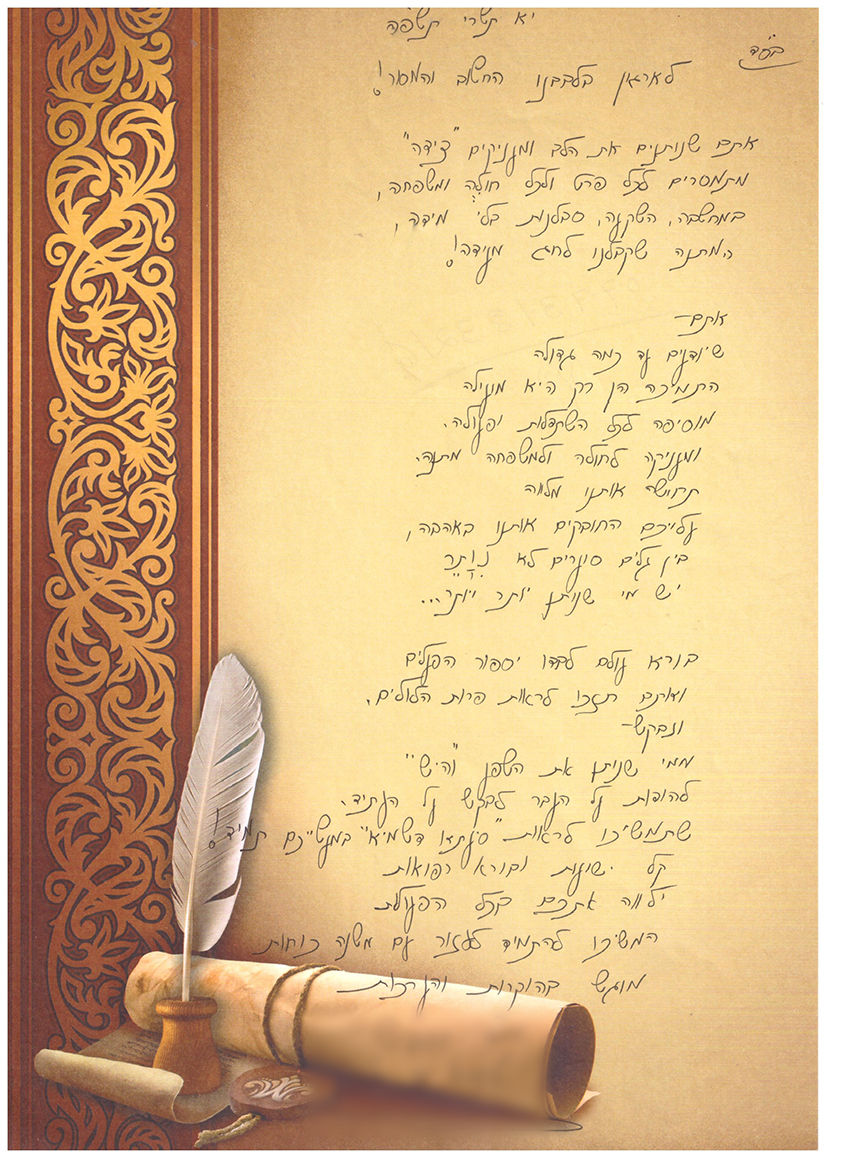 בס"ד
יא תשרי תשפ"ה
לארגון בלבבנו החשוב והמסור!
אתם שנותנים את הלב ומעניקים "צידה"
מתמסרים לכל פרט ולכל חולה ומשפחה,
במחשבה, השקעה, סבלנות בלי מידה,
המתנה שקבלנו לחג מעידה!
אתם-
שיודעים עד כמה גדולה
התמיכה הן רק היא מועילה
מוסיפה לכל השתדלות ופעולה.
ומעניקה לחולה ולמשפחה מתנה.
תחושה אותנו מלווה
עליכם החובקים אותנו באהבה,
בין גלים סוערים לא נִוָתֵר
יש מי שנותן יותר ויותר...
בורא עולם לבדו יספור הפעלים
ואתם תזכו לראות פרות הלולים.
ונבקש-
ממי שנותן את השפע "והיש"
להודות על העבר לבקש על העתיד.
שתמשיכו לראות "סיעתא דשמיא" במעשיכם תמיד!
קל ישועות ובורא רפואות
ילווה אתכם בכל הפעולות
המשיכו להתמיד לעזור עם משנה כוחות
מוגש בהוקרות והערכות